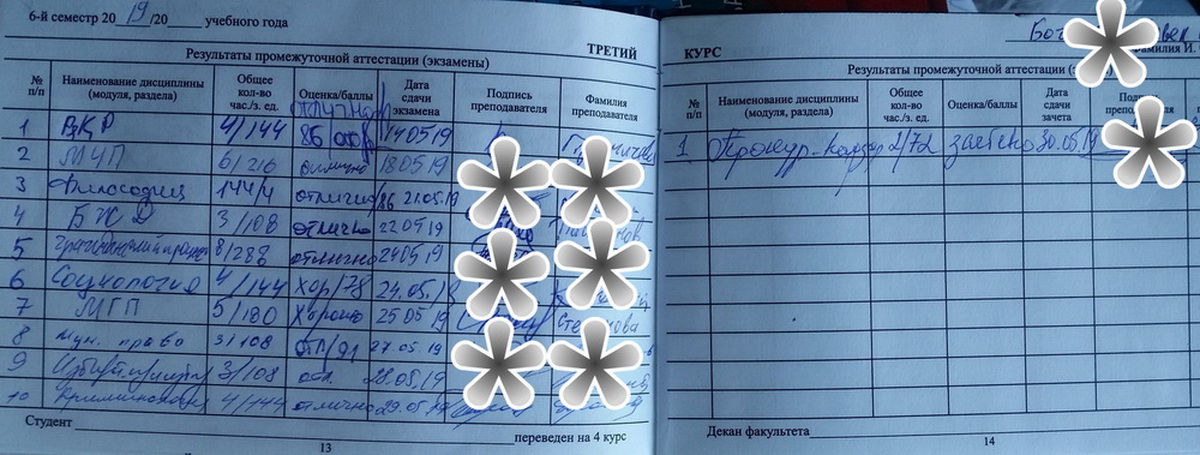 6-й семестр 20 19 /20 учебного года
ТРЕТИЙ
Результаты промежуточной аттестации (экзамены)
№ п/п Наименование дисциплины (модуля, раздела) Общее кол-во час./з. ед. Оценка/баллы Дата сдачи экзамена Подпись преподавателя Фамилия преподавателя
отлично
1 4/144 86/ 14 05 19
2 МЧП 6/216 отлично 18 05 19
3 Философия 144/4 отлично/86 21.05.19
4 БЖД 3/108 отлично 22 05 19
5 8/288 отлично 24 05 19
6 Социология 4/144 Хор/78 24.05.19
7 МГП 5/180 Хорошо 25 05 19
8 Мун. право 3/108 отл/91 27.05.19
9 3/108 отл. 28.05.19
10 Криминология 4/144 отлично 29.05.19
Студент переведен на 4 курс
13
КУРС
Фамилия И.
Результаты промежуточной аттестации
№ п/п Наименование дисциплины (модуля, раздела) Общее кол-во час./з. ед. Оценка/баллы Дата сдачи зачета
1 Прокур. надзор 2/72 зачтено 30.05.19
Декан факультета
14